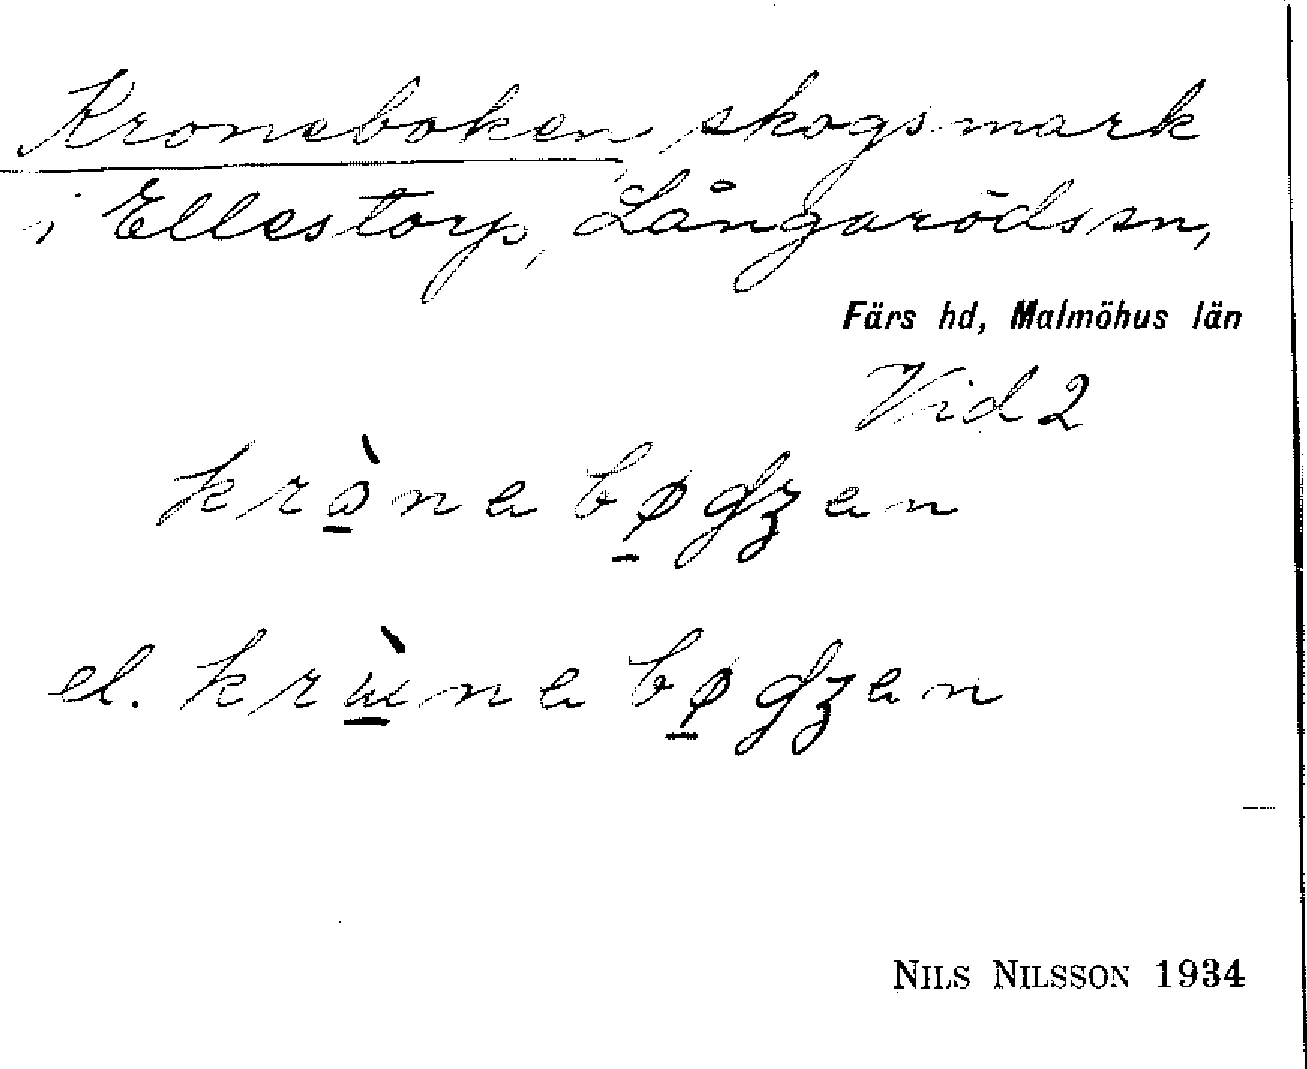 Kroneboken, skogsmark
i Ellestorp, Långarödssn,
Färs hd, Malmöhus län
Vid 2
krò̠nebø̠dʒen
el. krɯ̠̀nebø̠dʒen
NILS NILSSON 1934